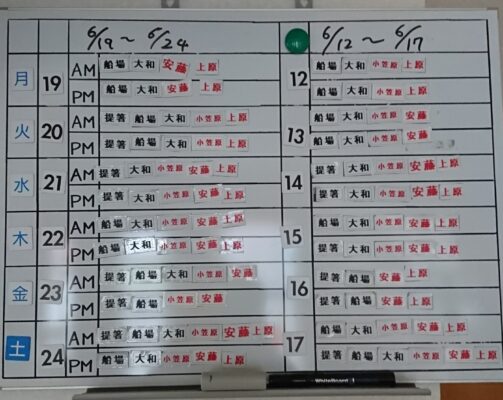 6/19 ～ 6/24 6/12 ～ 6/17
月 19 AM 船場 大和 安藤 上原 12 船場 大和 小笠原 上原
PM 船場 大和 安藤 上原 船場 大和 小笠原 上原
火 20 AM 提箸 船場 大和 小笠原 上原 13 提箸 船場 大和 小笠原 安藤
PM 提箸 船場 大和 小笠原 上原 船場 大和 小笠原 安藤
水 21 AM 提箸 大和 小笠原 安藤 上原 14 提箸 大和 小笠原 安藤 上原
PM 提箸 大和 小笠原 安藤 上原 提箸 大和 小笠原 安藤 上原
木 22 AM 船場 大和 小笠原 安藤 上原 15 提箸 大和 小笠原 安藤 上原
PM 船場 大和 小笠原 安藤 上原 提箸 大和 小笠原 安藤 上原
金 23 AM 提箸 船場 大和 小笠原 安藤 16 提箸 船場 大和 安藤 上原
PM 提箸 船場 小笠原 安藤 提箸 船場 大和 安藤 上原
土 24 AM 提箸 船場 大和 小笠原 安藤 上原 17 船場 大和 小笠原 安藤 上原
PM 船場 大和 小笠原 安藤 上原 提箸 大和 小笠原 安藤 上原
WhiteBoard